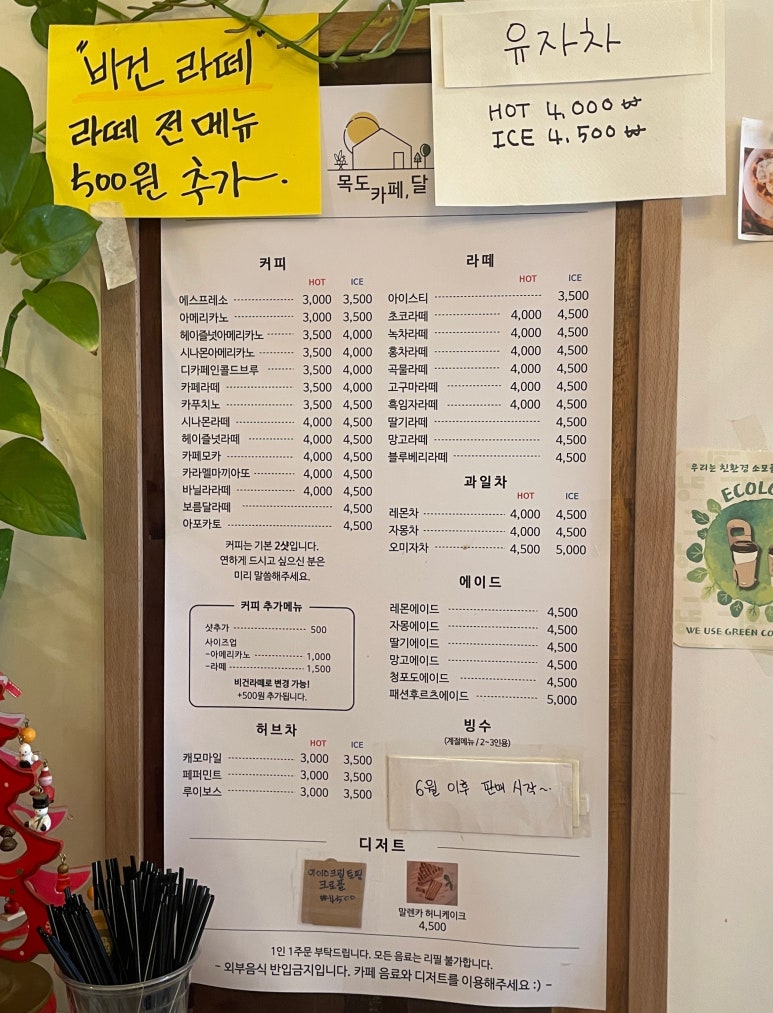 "비건 라떼
라떼 전메뉴
500원 추가~.
유자차
HOT 4,000₩
ICE 4,500₩
목도카페,달
커피
HOT ICE
에스프레소 3,000 3,500
아메리카노 3,000 3,500
헤이즐넛아메리카노 3,500 4,000
시나몬아메리카노 3,500 4,000
디카페인콜드브루 3,500 4,000
카페라떼 3,500 4,000
카푸치노 3,500 4,500
시나몬라떼 4,000 4,500
헤이즐넛라떼 4,000 4,500
카페모카 4,000 4,500
카라멜마끼아또 4,000 4,500
바닐라라떼 4,000 4,500
보름달라떼 4,500
아포카토 4,500
커피는 기본 2샷입니다.
연하게 드시고 싶으신 분은
미리 말씀해주세요.
커피 추가메뉴
샷추가 500
사이즈업
-아메리카노 1,000
-라떼 1,500
비건라떼로 변경 가능!
+500원 추가됩니다.
허브차
HOT ICE
캐모마일 3,000 3,500
페퍼민트 3,000 3,500
루이보스 3,000 3,500
라떼
HOT ICE
아이스티 3,500
초코라떼 4,000 4,500
녹차라떼 4,000 4,500
홍차라떼 4,000 4,500
곡물라떼 4,000 4,500
고구마라떼 4,000 4,500
흑임자라떼 4,000 4,500
딸기라떼 4,500
망고라떼 4,500
블루베리라떼 4,500
과일차
HOT ICE
레몬차 4,000 4,500
자몽차 4,000 4,500
오미자차 4,500 5,000
에이드
레몬에이드 4,500
자몽에이드 4,500
딸기에이드 4,500
망고에이드 4,500
청포도에이드 4,500
패션후르츠에이드 5,000
빙수
(계절메뉴 / 2~3인용)
6월 이후 판매 시작~.
디저트
아이스크림토핑
크로플
₩4,500
말렌카 허니케이크
4,500
1인 1주문 부탁드립니다. 모든 음료는 리필 불가합니다.
- 외부음식 반입금지입니다. 카페 음료와 디저트를 이용해주세요 :) -
우리는 친환경
WE USE GREEN